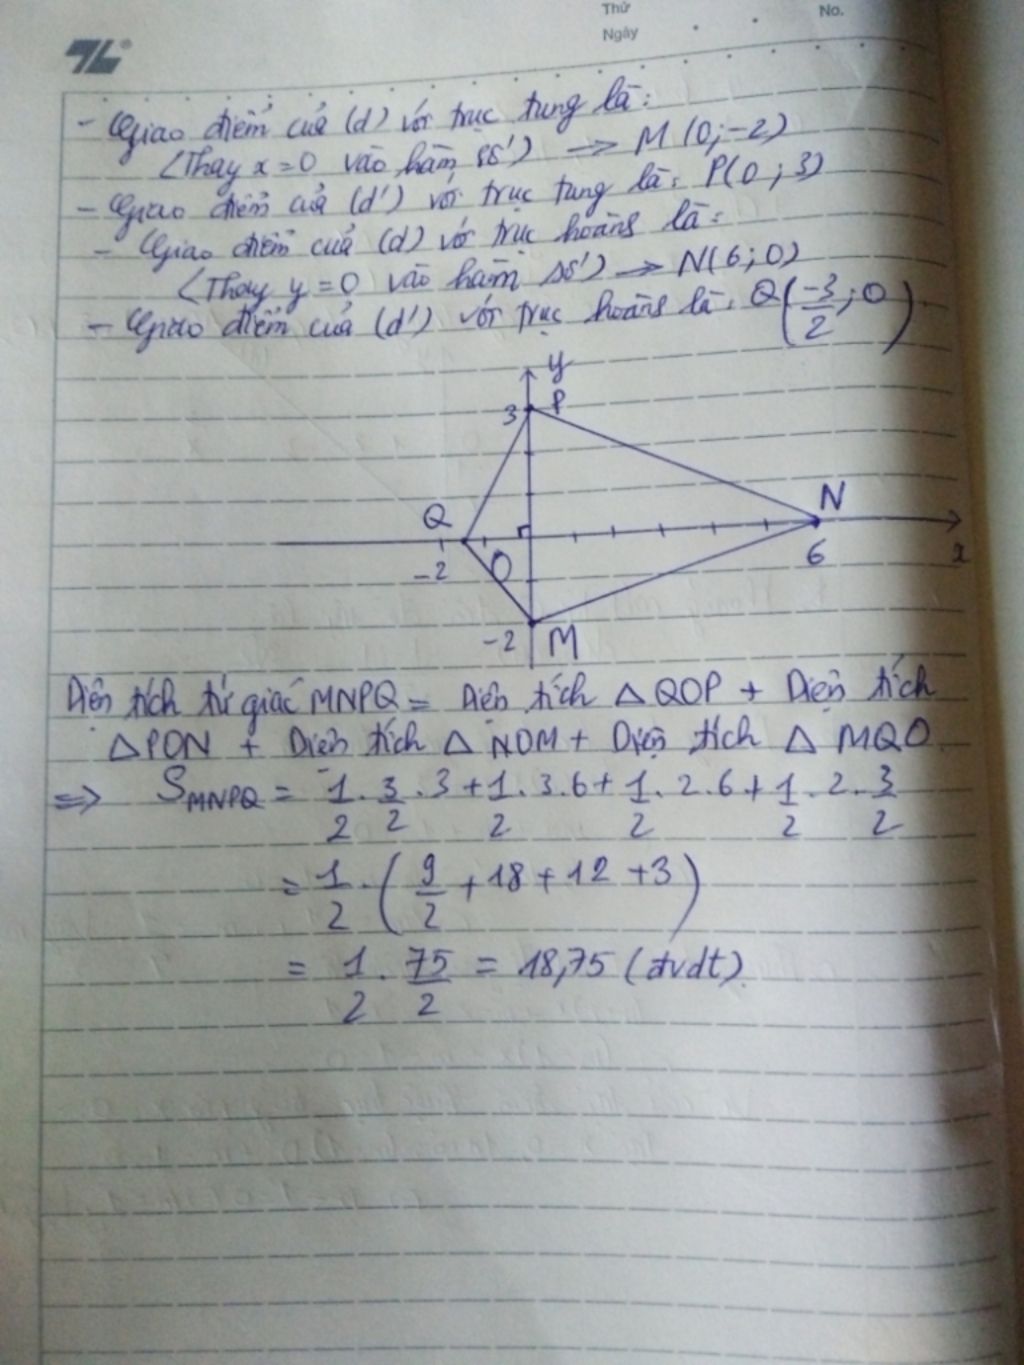 Thứ
No.
Ngày
- Giao điểm của (d) với trục tung là:
(Thay x=0 vào hàm số) → M(0;-2)
- Giao điểm của (d') với trục tung là: P(0;3)
- Giao điểm của (d) với trục hoành là:
(Thay y=0 vào hàm số) → N(6;0)
- Giao điểm của (d') với trục hoành là: Q(-3/2;0)
y
3 P
Q
N
-2
O
6
x
-2 M
Diện tích tứ giác MNPQ = Diện tích △QOP + Diện tích
△PON + Diện tích △NOM + Diện tích △MQO.
=> S_MNPQ = 1/2 . 3/2 . 3 + 1/2 . 3.6 + 1/2 . 2.6 + 1/2 . 2 . 3/2
= 1/2 . (9/2 + 18 + 12 + 3)
= 1/2 . 75/2 = 18,75 (đvdt).